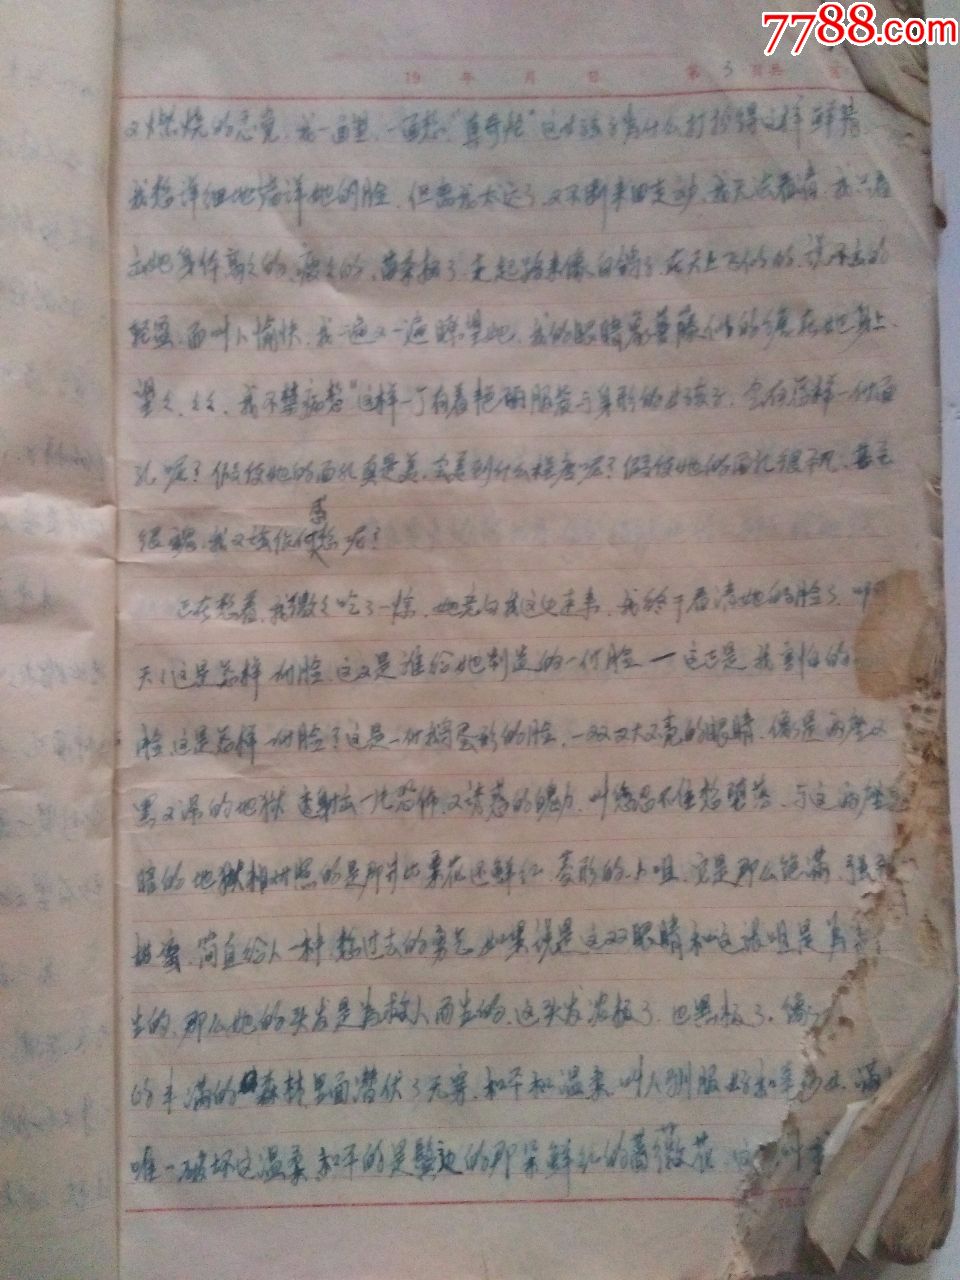 7788.com
19 年 月 日 第 3 页共 页
又燃烧的感觉，我一面望，一面想："真奇怪"这女孩子为什么打扮得这样鲜艳
我想详细地端详她的脸，但离我太远了，又不断来回走动，我无法看清，我只看
出她身体高高的，瘦瘦的，苗条极了，走起路来像白鹤子在天上飞似的，说不出的
轻盈，而叫人愉快，我一遍又一遍瞭望她，我的眼睛象蔓藤似的缠在她身上，
望久，久久，我不禁痴想"这样一个有着艳丽服装与身形的女孩子，会有怎样一付面
孔呢？假使她的面孔真是美，会美到什么程度呢？假使她的面孔很平凡，甚至
很丑，我又该作何感想呢？
正在想着，我微微吃了一惊，她竟向我这边走来，我终于看清她的脸了，叫
天！这是怎样一付脸，这又是谁给她制造的一付脸一
脸，这是怎样一付脸？这是一付鹅蛋形的脸，一双又大又亮的眼睛，像是两座又
黑又深的地狱 透射出一片恐怖，又诱惑的魄力，叫您忍不住想堕落，与这两座
暗的地狱相对照的是那并比枣花还鲜红，菱形的小咀，它是那么饱满，
甜蜜，简直给人一种 想过去的勇气 如果说是这双眼睛和这张咀是
生的，那么她的头发是为救人而生的，这头发浓极了，也黑极了，像
的丰满的森林里面潜伏了无穷，和平和温柔，叫人驯服
唯一破坏这温柔和平的是鬓边的那朵鲜红的蔷薇花，这